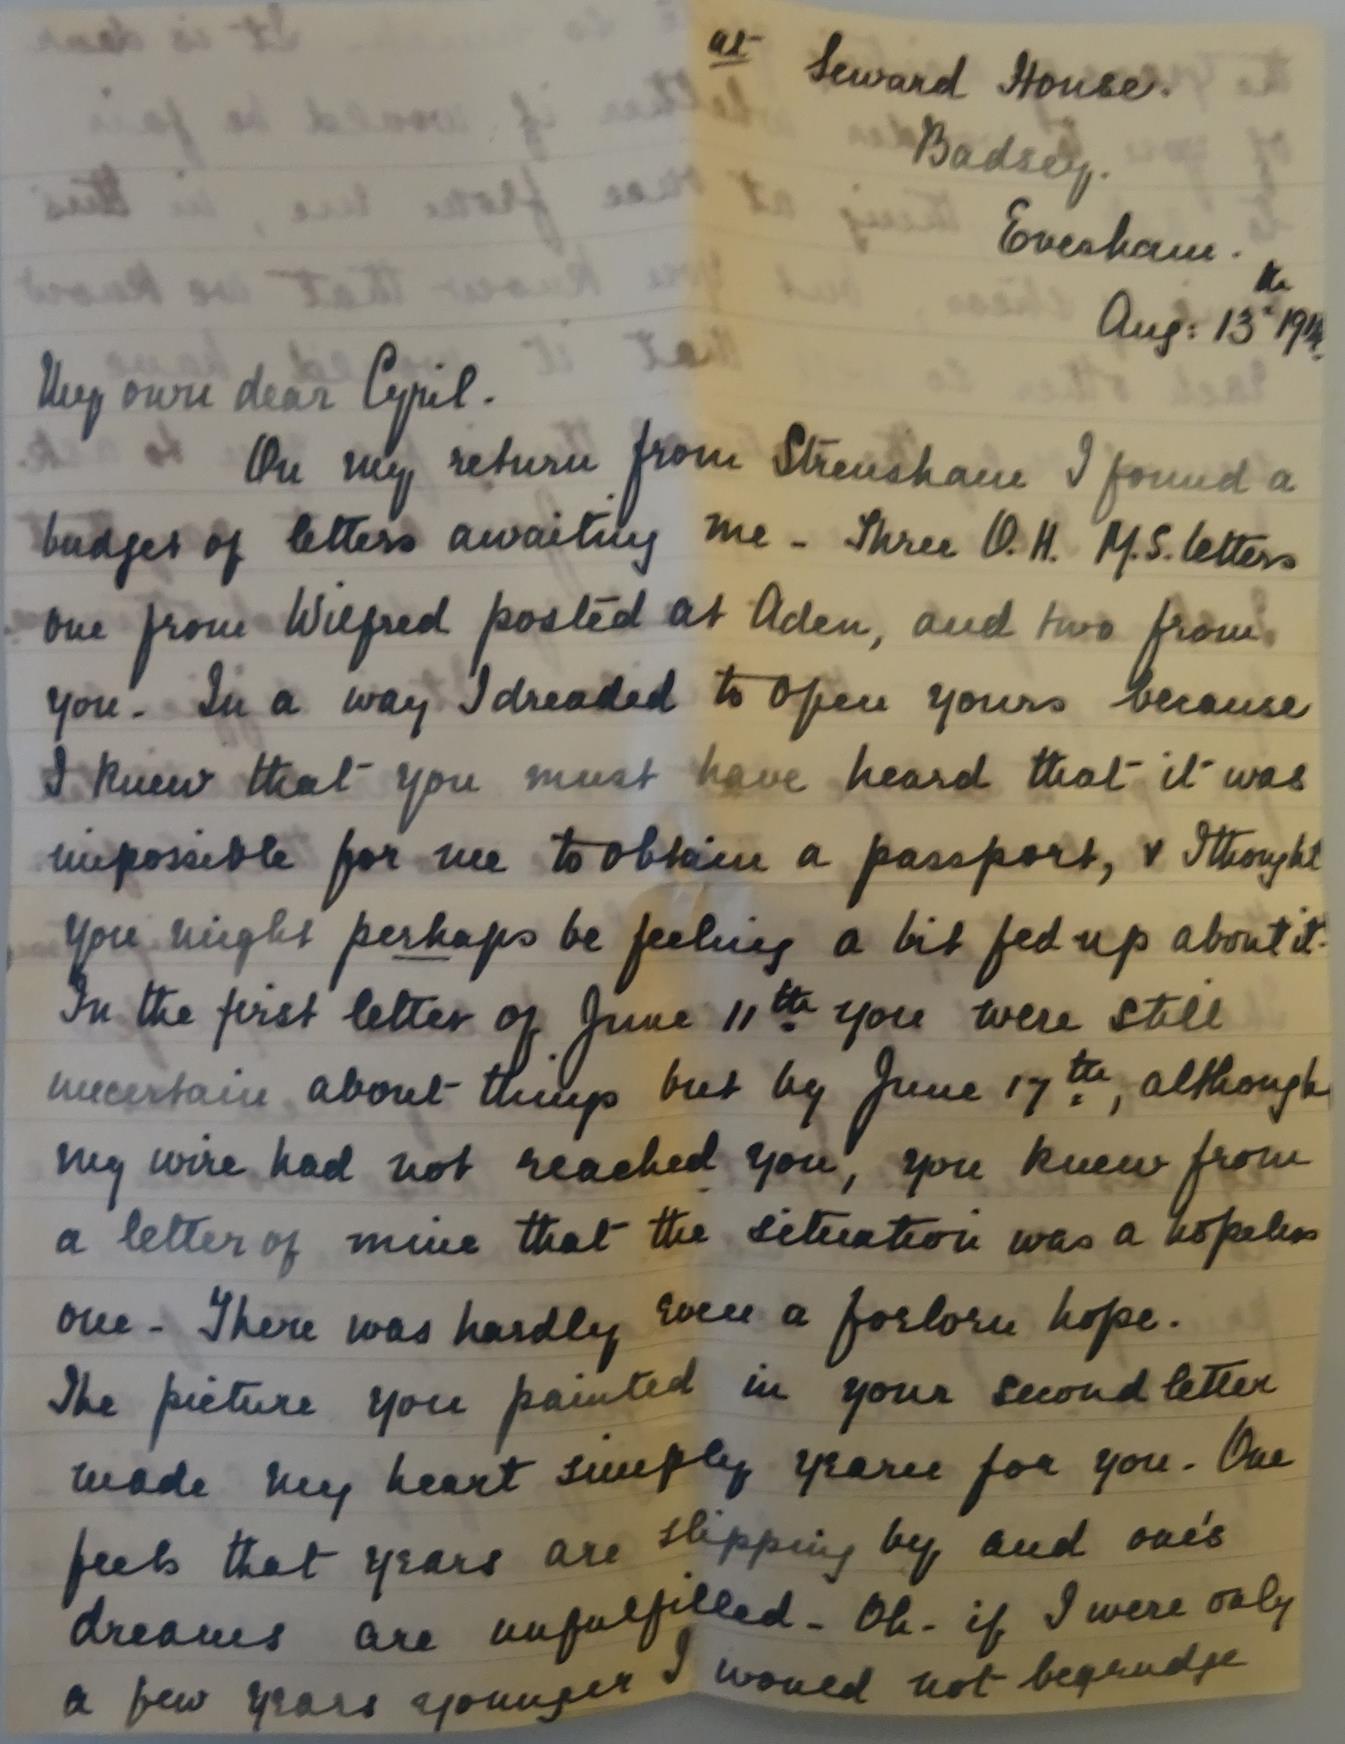 at Seward House.
Badsey.
Evesham.
Aug: 13th 191
My own dear Cyril.
On my return from Strensham I found a
budget of letters awaiting me - Three O.H.M.S. letters
one from Wilfred posted at Aden, and two from
you - In a way I dreaded to open yours because
I knew that you must have heard that it was
impossible for me to obtain a passport, & I thought
you might perhaps be feeling a bit fed up about it -
In the first letter of June 11th you were still
uncertain about things but by June 17th, although
my wire had not reached you, you knew from
a letter of mine that the situation was a hopeless
one - There was hardly even a forlorn hope.
The picture you painted in your second letter
made my heart simply yearn for you - One
feels that years are slipping by, and one's
dreams are unfulfilled - Oh - if I were only
a few years younger I would not begrudge